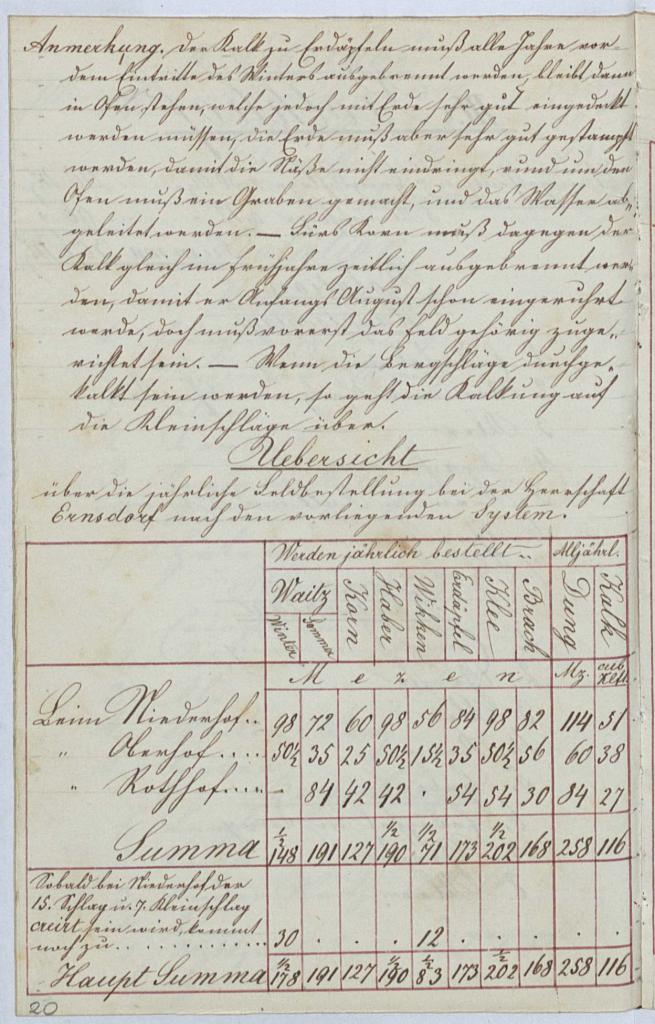 Anmerkung. Der Kalk zu Erdäpfeln muß alle Jahre vor-
dem Eintritte des Winters ausgebrennt werden, bleibt dann
in Ofen stehen, welche jedoch mit Erde sehr gut eingedeckt
werden müssen, die Erde muß aber sehr gut gestampft
werden, damit die Näße nicht eindringt, rund um den
Ofen muß ein Graben gemacht, und das Wasser ab„
geleitet werden. — Fürs Korn muß dagegen der
Kalk gleich im Frühjahre zeitlich ausgebrennt wer„
den, damit er Anfangs August schon eingerührt
werde, doch muß vorerst das Feld gehörig zuge„
richtet sein. — Wenn die Bergschläge durchge„
kalkt sein werden, so geht die Kalkung auf
die Kleinschläge über.
Uebersicht
über die jährliche Feldbestellung bei der Herrschaft
Ernsdorf nach den vorliegenden System.
Werden jährlich bestellt.. Alljährl.
Waitz Korn Haber Wikken Erdäpfel Klee Brach Dung Kalk
Winter Sommer
M e z e n Mz. cub. Klft.
Beim Niederhof.. 98 72 60 98 56 84 98 82 114 51
„ Oberhof.... 50½ 35 25 50½ 15½ 35 50½ 56 60 38
„ Rothhof.... - 84 42 42 . 54 54 30 84 27
Summa ½148 191 127 ½190 ½71 173 ½202 168 258 116
Sobald bei Niederhof der
15. Schlag u. 7. Kleinschlag
creirt sein wird, kommt
noch zu........... 30 . . . 12 . . . . .
Haupt Summa ½178 191 127 ½190 ½83 173 ½202 168 258 116
20